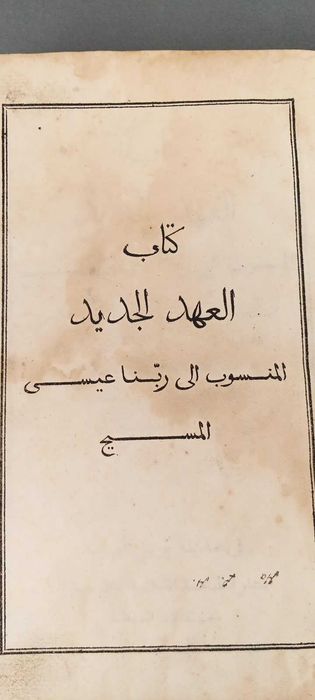 كتاب
العهد الجديد
المنسوب الى ربّنا عيسى
المسيح